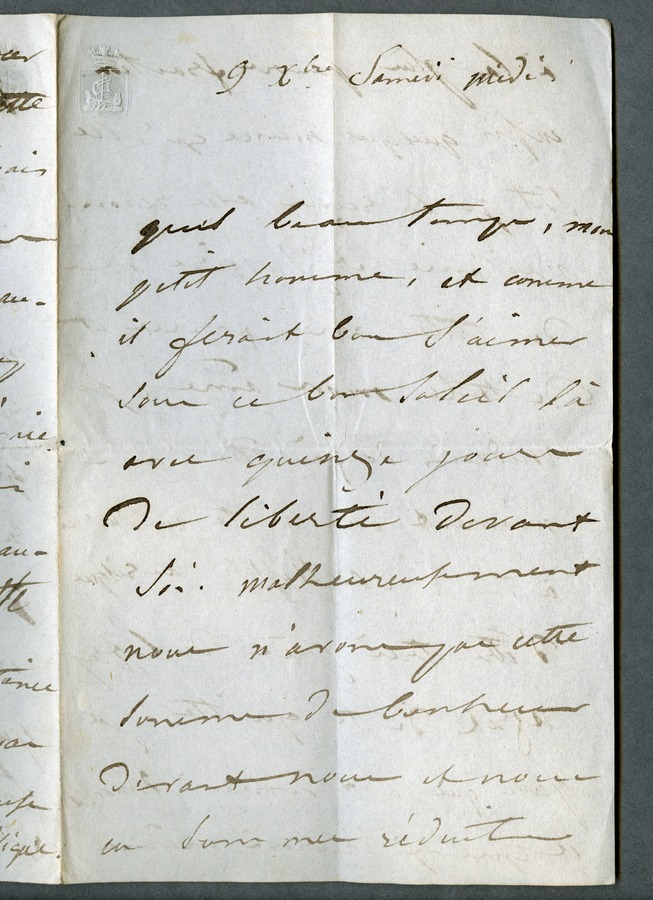 9 Xbre Samedi midi
quel beau temps, mon
petit homme, et comme
il ferait bon s'aimer
sous ce bon soleil là
avec quinze jours
De liberté Devant
Soi. malheureusement
nous n'avons pas cette
somme de bonheur
Devant nous et nous
en sommes réduits